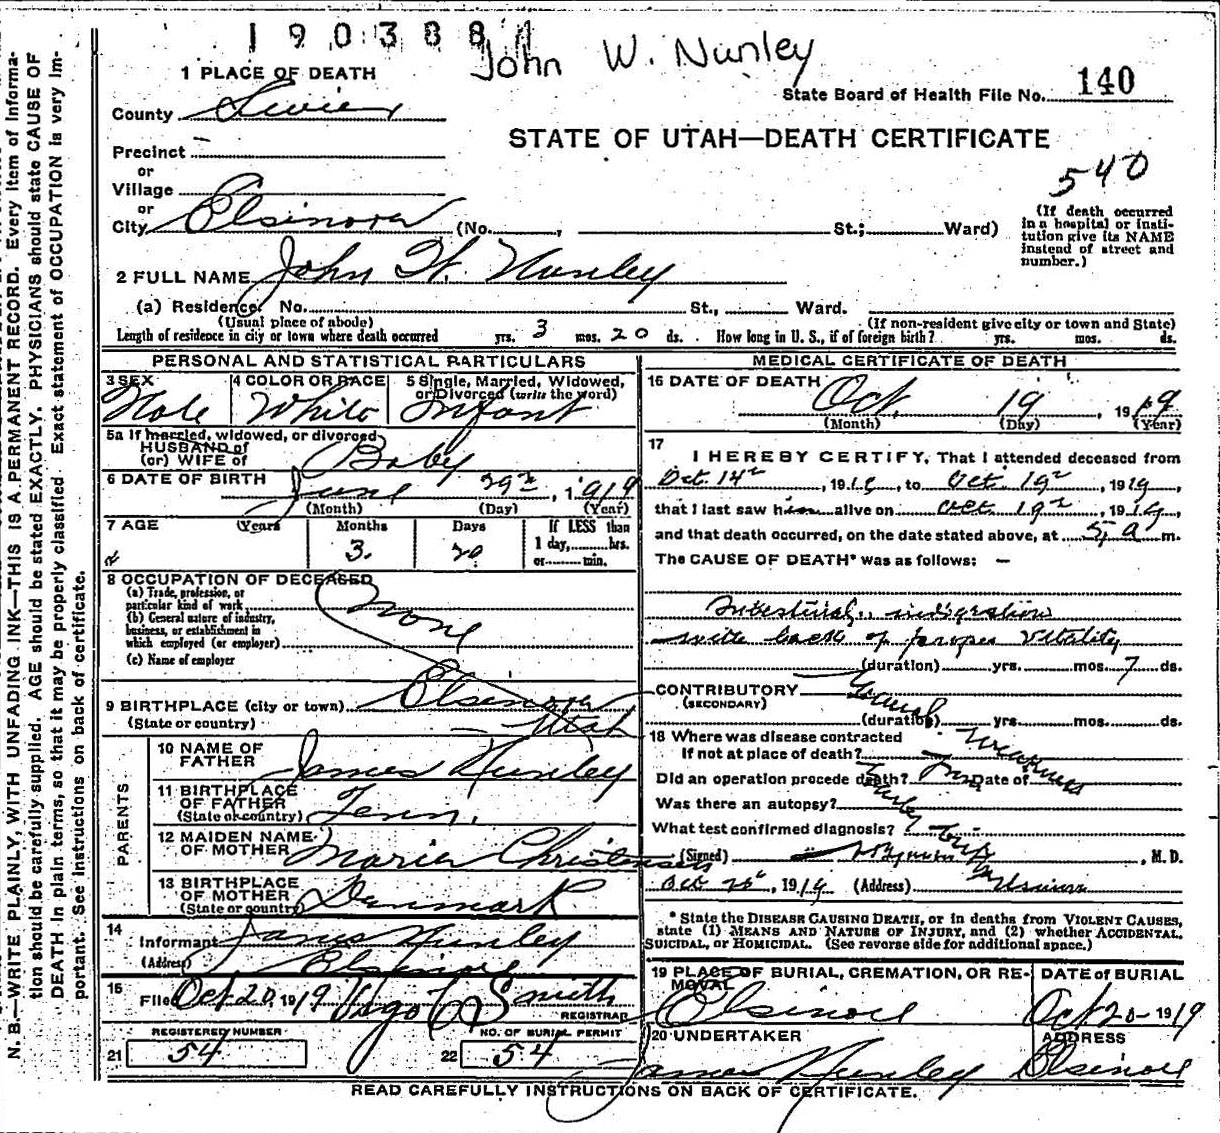 190388
John W. Nunley
1 PLACE OF DEATH
State Board of Health File No. 140
County Sevier
STATE OF UTAH—DEATH CERTIFICATE
Precinct
or
540
Village
or
City Elsinore (No. , St.; Ward)
(If death occurred
in a hospital or insti-
tution give its NAME
instead of street and
number.)
2 FULL NAME John W. Nunley
(a) Residence. No. St., Ward.
(Usual place of abode) (If non-resident give city or town and State)
Length of residence in city or town where death occurred yrs. 3 mos. 20 ds. How long in U. S., if of foreign birth? yrs. mos. ds.
PERSONAL AND STATISTICAL PARTICULARS
3 SEX
Male
4 COLOR OR RACE
White
5 Single, Married, Widowed,
or Divorced (write the word)
Infant
5a If married, widowed, or divorced
HUSBAND of
(or) WIFE of Baby
6 DATE OF BIRTH
June 29, 1919
(Month) (Day) (Year)
7 AGE Years Months Days If LESS than
1 day, hrs.
or min.
3. 20
8 OCCUPATION OF DECEASED
(a) Trade, profession, or
particular kind of work
(b) General nature of industry,
business, or establishment in
which employed (or employer)
(c) Name of employer
None
9 BIRTHPLACE (city or town) Elsinore
(State or country) Utah
PARENTS
10 NAME OF
FATHER James Nunley
11 BIRTHPLACE
OF FATHER
(State or country) Tenn.
12 MAIDEN NAME
OF MOTHER Maria Christensen
13 BIRTHPLACE
OF MOTHER
(State or country) Denmark
14
Informant James Nunley
(Address) Elsinore
15
Filed Oct 20 1919 Smith
REGISTRAR
REGISTERED NUMBER NO. OF BURIAL PERMIT
21 54 22 54
MEDICAL CERTIFICATE OF DEATH
16 DATE OF DEATH
Oct. 19, 1919
(Month) (Day) (Year)
17
I HEREBY CERTIFY, That I attended deceased from
Oct. 14, 1919, to Oct. 19, 1919,
that I last saw him alive on Oct. 19, 1919,
and that death occurred, on the date stated above, at 5, a m.
The CAUSE OF DEATH* was as follows: —
Intestinal indigestion
with lack of proper Vitality
(duration) yrs. mos. 7 ds.
CONTRIBUTORY General
(SECONDARY)
(duration) yrs. mos. ds.
Weakness
18 Where was disease contracted
If not at place of death?
Did an operation precede death? No Date of
Was there an autopsy?
What test confirmed diagnosis?
(Signed) , M. D.
Oct 20, 1919 (Address) Elsinore
* State the DISEASE CAUSING DEATH, or in deaths from VIOLENT CAUSES,
state (1) MEANS AND NATURE OF INJURY, and (2) whether ACCIDENTAL,
SUICIDAL, or HOMICIDAL. (See reverse side for additional space.)
19 PLACE OF BURIAL, CREMATION, OR RE-
MOVAL
Elsinore
DATE of BURIAL
Oct 20- 1919
20 UNDERTAKER
James Nunley
ADDRESS
Elsinore
READ CAREFULLY INSTRUCTIONS ON BACK OF CERTIFICATE.
N. B.—WRITE PLAINLY, WITH UNFADING INK—THIS IS A PERMANENT RECORD. Every item of Informa-
tion should be carefully supplied. AGE should be stated EXACTLY. PHYSICIANS should state CAUSE OF
DEATH in plain terms, so that it may be properly classified. Exact statement of OCCUPATION is very im-
portant. See instructions on back of certificate.